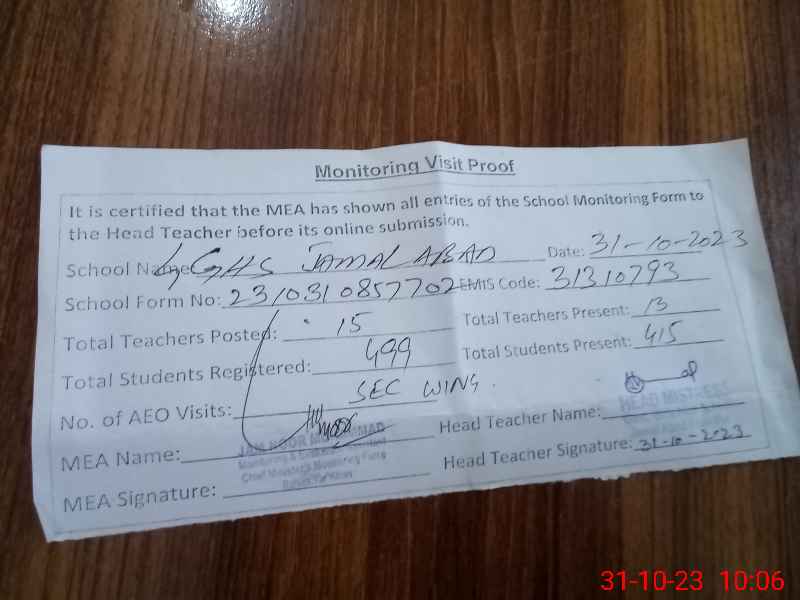 Monitoring Visit Proof
It is certified that the MEA has shown all entries of the School Monitoring Form to
the Head Teacher before its online submission.
School Name GHS JAMAL ABAD Date: 31-10-2023
School Form No: 2310310857702 EMIS Code: 31310793
Total Teachers Posted: 15 Total Teachers Present: 13
Total Students Registered: 499 Total Students Present: 415
No. of AEO Visits: SEC WING. Head Teacher Name: HEAD MISTRESS
MEA Name: JAM NOOR MUHAMMAD Head Teacher Signature: 31-10-2023
Monitoring &
Chief Minister's Monitoring Force
MEA Signature:
31-10-23 10:06